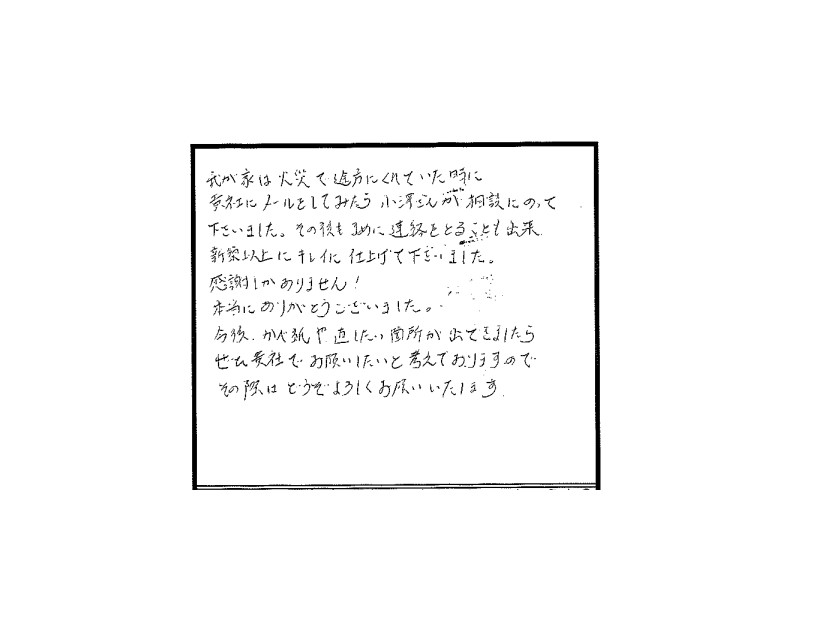 我が家は火災で途方にくれていた時に
貴社にメールをしてみたら小澤さんが相談にのって
下さいました。その後もまめに連絡をとることも出来
新築以上にキレイに仕上げて下さいました。
感謝しかありません!
本当にありがとうございました。
今後、かべ紙や直したい箇所が出てきましたら
ぜひ貴社でお願いしたいと考えておりますので
その際はどうぞよろしくお願いいたします。